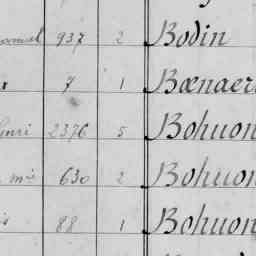 937 2 Bodin
7 1 Bœnaer
2376 5 Bohuon
630 2 Bohuon
88 1 Bohuon